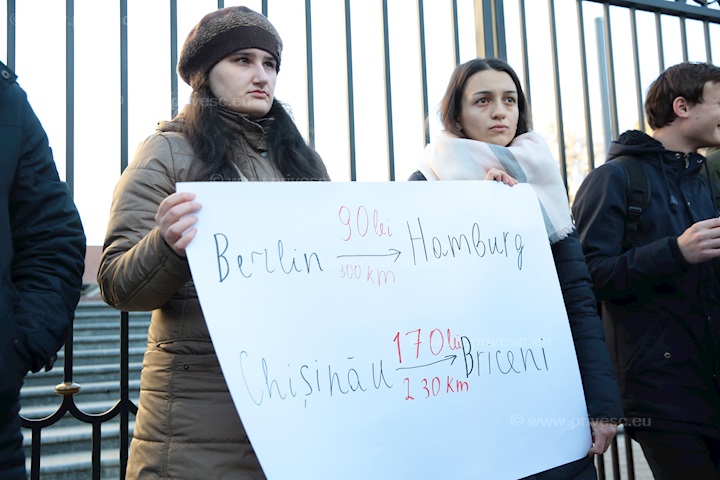 90 lei
Berlin → Hamburg
300 km
170 lei
Chișinău → Briceni
230 km
© www.privesc.eu